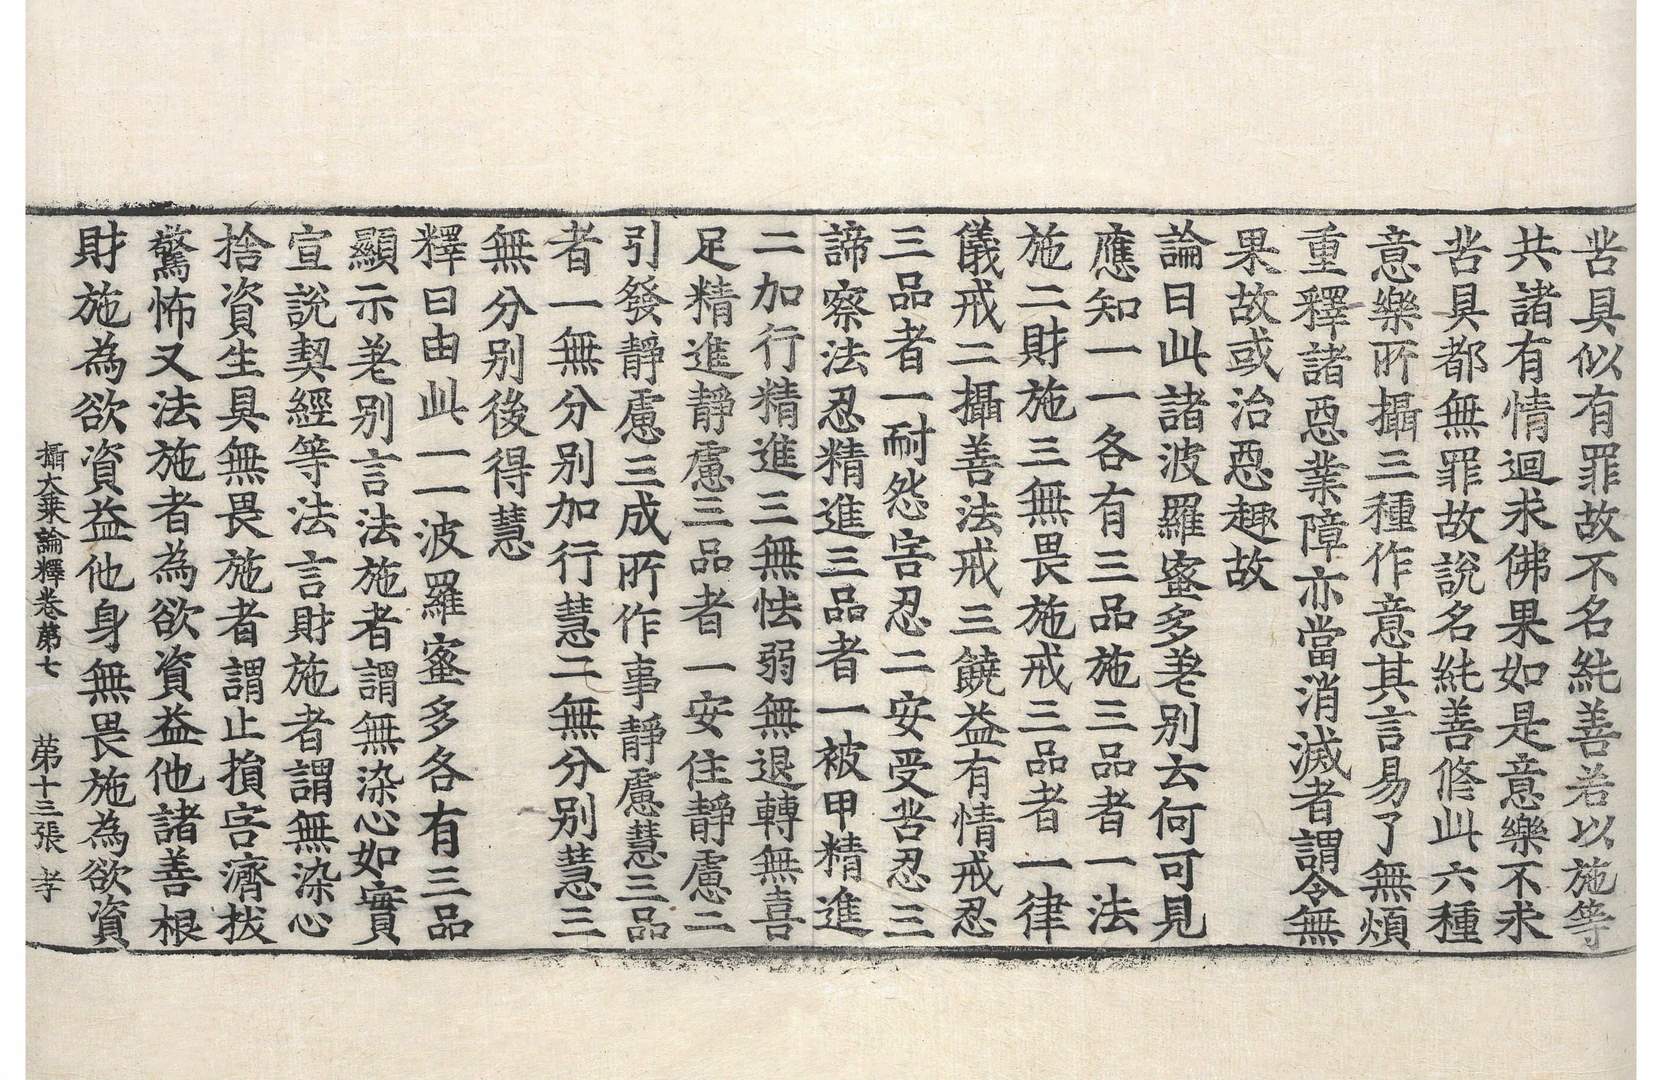 苦具似有罪故不名純善若以施等
共諸有情迴求佛果如是意樂不求
苦具都無罪故說名純善修此六種
意樂所攝三種作意其言易了無煩
重釋諸惡業障亦當消滅者謂令無
果故或治惡趣故
論曰此諸波羅蜜多差别云何可見
應知一一各有三品施三品者一法
施二財施三無畏施戒三品者一律
儀戒二攝善法戒三饒益有情戒忍
三品者一耐怨害忍二安受苦忍三
諦察法忍精進三品者一被甲精進
二加行精進三無怯弱無退轉無喜
足精進靜慮三品者一安住靜慮二
引發靜慮三成所作事靜慮慧三品
者一無分别加行慧二無分别慧三
無分别後得慧
釋曰由此一一波羅蜜多各有三品
顯示差别言法施者謂無染心如實
宣說契經等法言財施者謂無染心
捨資生具無畏施者謂止損害濟拔
驚怖又法施者為欲資益他諸善根
財施為欲資益他身無畏施為欲資
攝大乘論釋卷第七 第十三張 孝